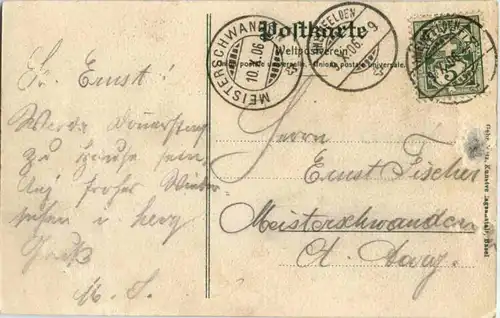 Postkarte
Weltpostverein
postale universelle. Unione postale universale.
MEISTERSCHWANDEN
10.X.06
FELDEN
06. 9
5
L. Ernst!
Werde Donerstag
zu Hause sein.
Auf frohes Wieder
sehen u. herz
Gruß
M. S.
Herrn
Ernst Fischer
Meisterschwanden
Ct. Aarg.